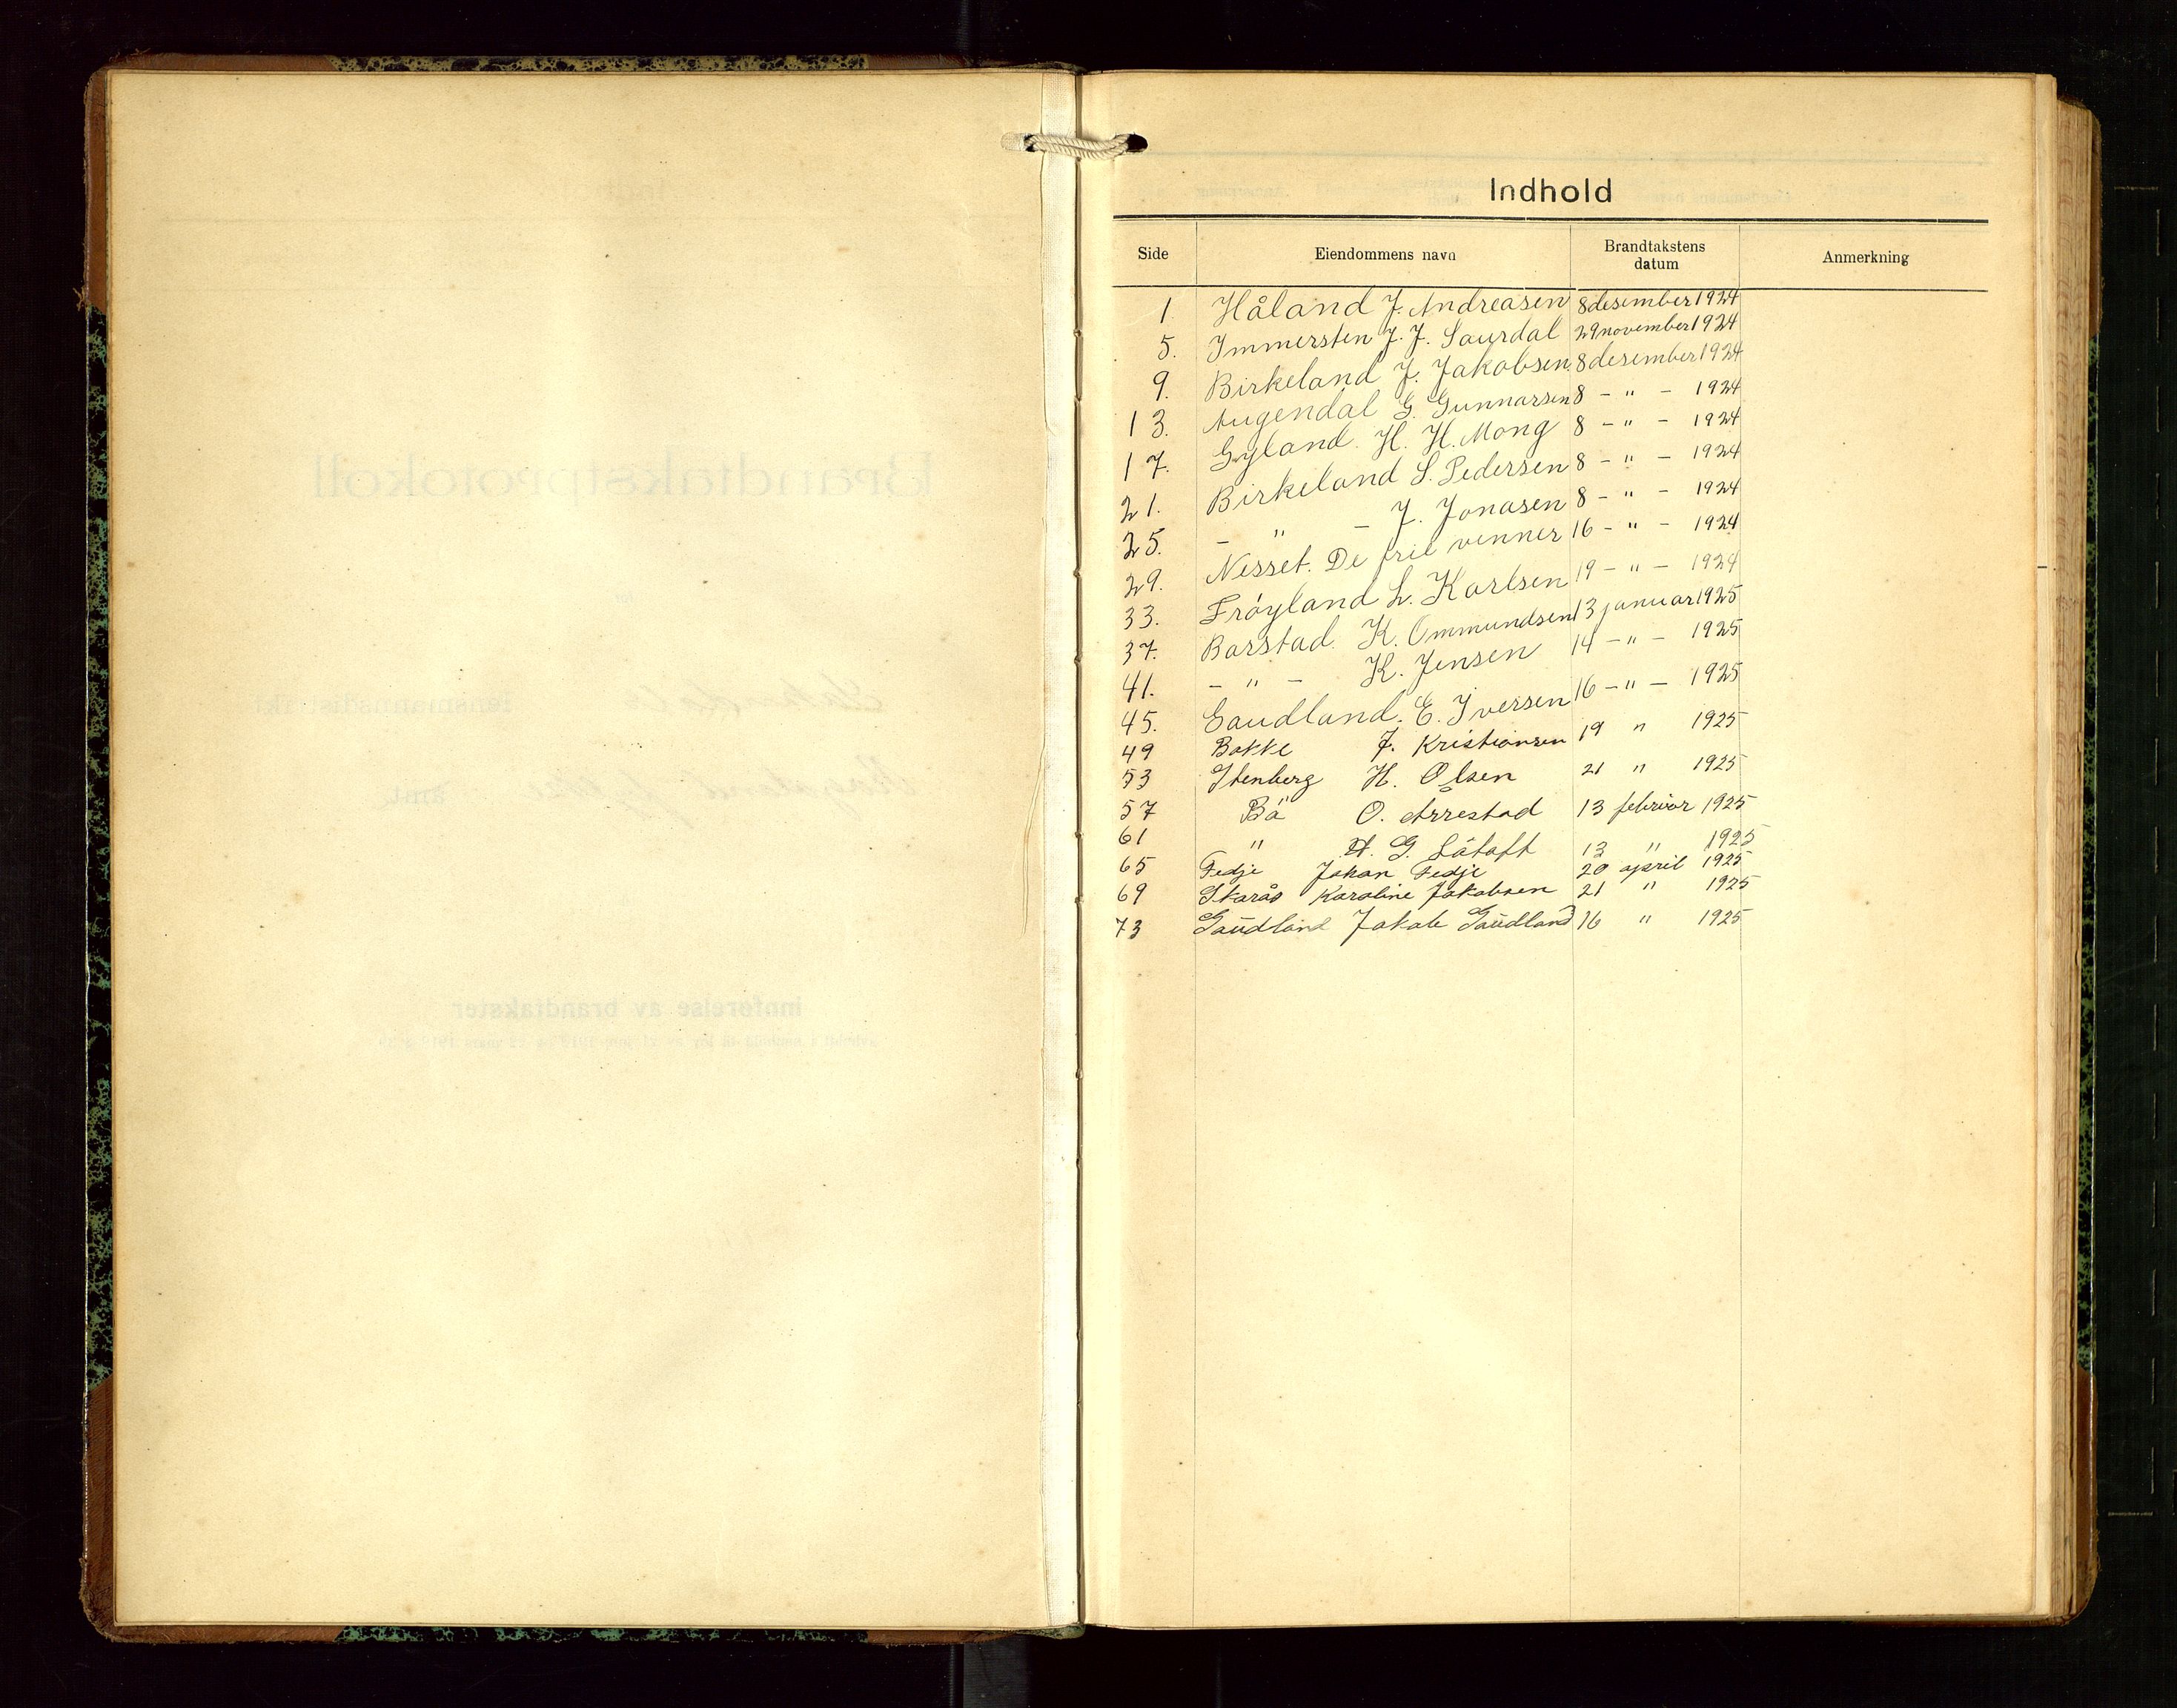 Indhold
Side Eiendommens navn Brandtakstens datum Anmerkning
1 Håland J. Andreasen 8 desember 1924
5. Immersten J. J. Saurdal 29 november 1924
9. Birkeland J. Jakobsen 8 desember 1924
13. Augendal G. Gunnarsen 8 - " - 1924
17. Gyland. H. H. Mong 8 - " - 1924
21. Birkeland S. Pedersen 8 - " - 1924
25. - " - J. Jonasen 8 - " - 1924
29. Nesset. De frie venner 16 - " - 1924
33. Frøyland L. Karlsen 19 - " - 1924
37. Barstad. K. Ommundsen 13 januar 1925
41. - " - K. Jensen 14 - " - 1925
45. Gaudland. E. Iversen 16 - " - 1925
49 Bakke J. Kristiansen 19 " 1925
53 Stenberg H. Olsen 21 " 1925
57 Bø O. Arrestad 13 februar 1925
61 " G. 13 " 1925
65 Fedje Johan Fedje 20 april 1925
69 Skarås Karoline Jakobsen 21 " 1925
73 Gaudland Jakob Gaudland 16 " 1925